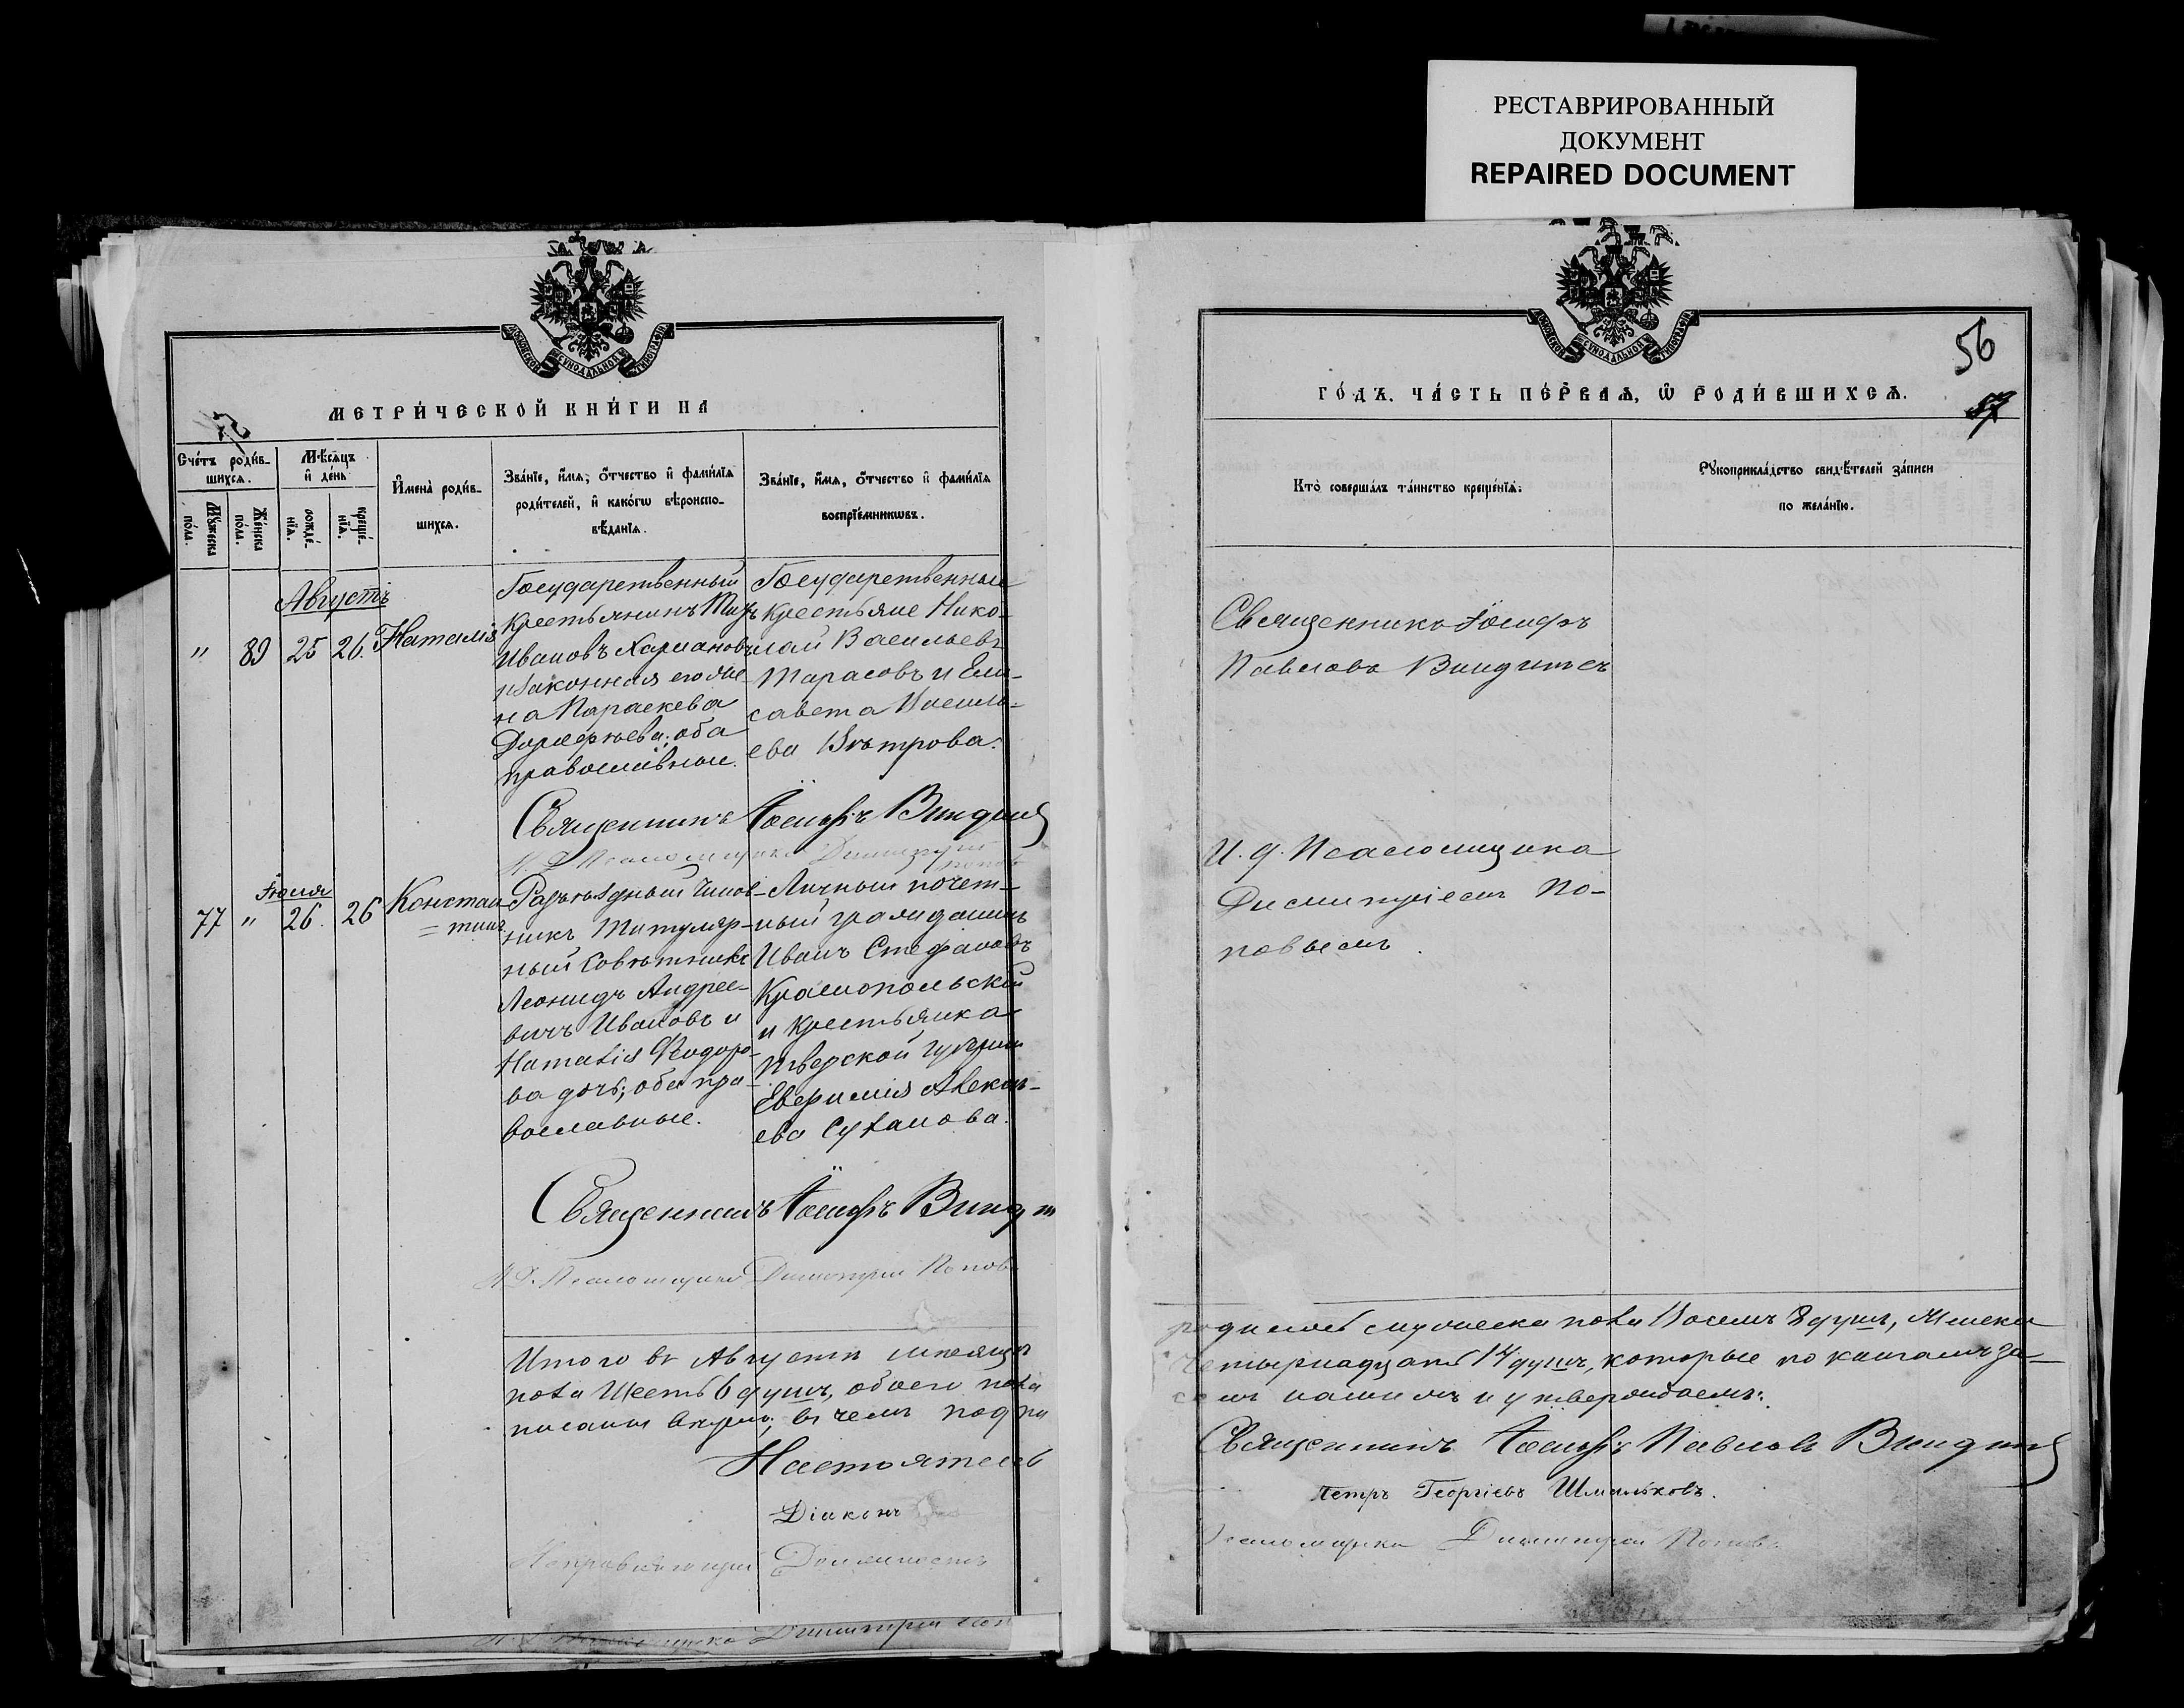 РЕСТАВРИРОВАННЫЙ
ДОКУМЕНТ
REPAIRED DOCUMENT
МОСКОВСКОЙ СѴНОДАЛЬНОЙ ТИПОГРАФІИ
МЕТРИ́ЧЕСКОЙ КНИ́ГИ НА
Сче́тъ роди́в-
шихсѧ.
Мꙋ́жеска
по́ла.
Же́нска
по́ла.
Мѣ́сѧцъ
и҆ де́нь
рожде́-
нїѧ.
креще́-
нїѧ.
И҆мена̀ роди́в-
шихсѧ.
Зва́нїе, и҆́мѧ, ѻ҆́тчество и҆ фами́лїѧ
роди́телей, и҆ како́гѡ вѣроиспо-
вѣ́данїѧ.
Зва́нїе, и҆́мѧ, ѻ҆́тчество и҆ фами́лїѧ
воспрїе́мникѡвъ.
Августъ
" 89 25 26. Наталія
Государственный
Крестьянинъ
Ивановъ Харланов
и законная его же-
на Параскева
оба
православные.
Государственные
крестьяне Нико-
лай Васильевъ
Тарасовъ и Ели-
савета Василь-
ева Вѣтрова.
Священникъ Іосифъ
Іюля
77 " 26. 26 Констан
=тинъ
Разъѣздный Чинов-
никъ Титуляр-
ный Совѣтникъ
Леонидъ Андрее-
вичъ Ивановъ и
Наталія Ѳеодоро-
ва дочь; оба пра-
вославные.
Личный почет-
ный гражданинъ
Иванъ Стефановъ
Краснопольскій
и крестьянка
Тверской губерніи
Евфимія Алексѣ-
ева Суханова.
Священникъ Іосифъ
И. Д. Псаломщика Димитрій Попов
Итого въ Августѣ мѣсяцѣ
пола Шесть 6 душъ, обоего пола
писаны вѣрно; въ чемъ подпи
Настоятель
Діаконъ
Исправляющій Должность
МОСКОВСКОЙ СѴНОДАЛЬНОЙ ТИПОГРАФІИ
ГО́ДЪ. ЧА́СТЬ ПЕ́РВАѦ, Ѡ҆ РОДИ́ВШИХСѦ.
56
57
Кто̀ соверша́лъ та́инство креще́нїѧ.
Рꙋкоприкла́дство свидѣ́телей за́писи
по жела́нїю.
Священникъ Іосифъ
Павловъ
И. д. Псаломщика
Димитріемъ По-
повымъ.
родилось мужеска пола Восемь 8 душъ, Женска
Четырнадцать 14 душъ, которые по книгамъ за-
семъ нашимъ и утверждаемъ:
Священникъ Іосифъ Павловъ
Петръ Георгіевъ Шмальковъ.
Псаломщика Димитрій Попов